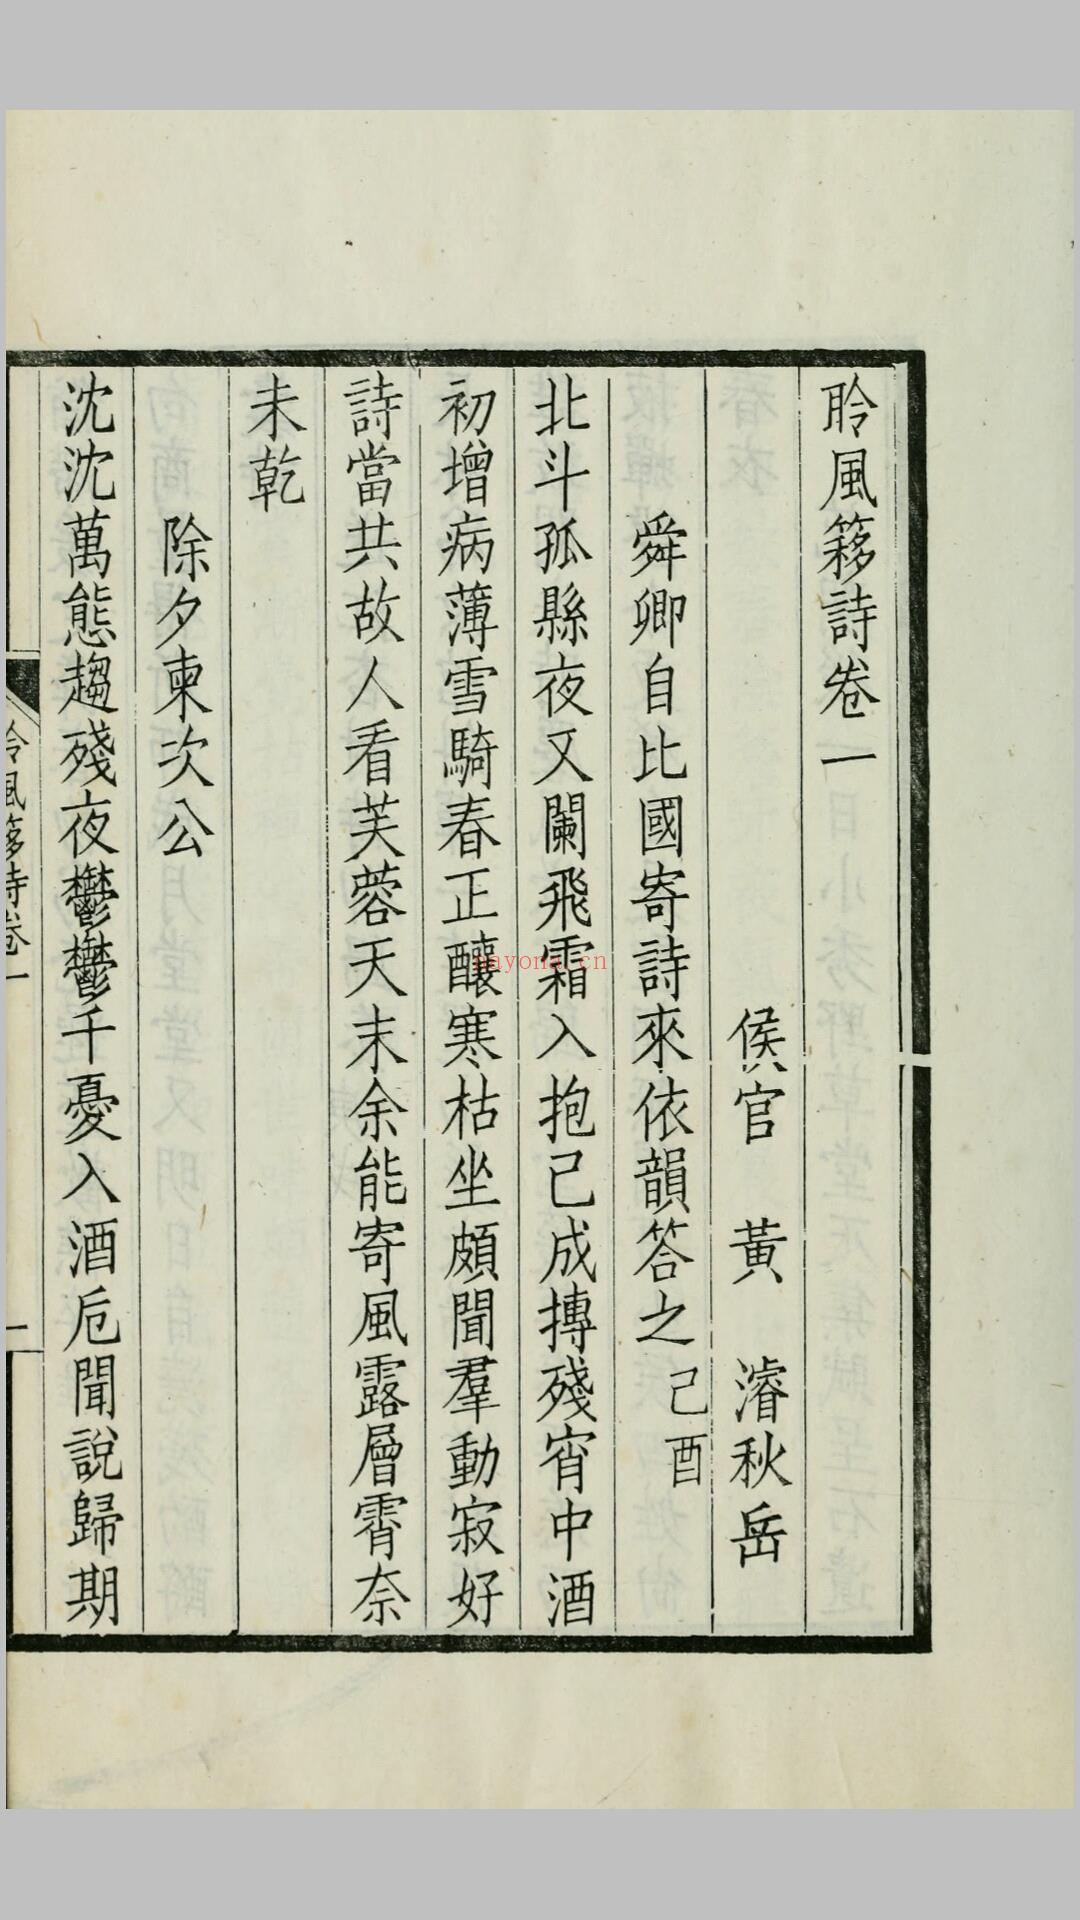 聆風簃詩卷一
侯官　黃　濬秋岳
舜卿自比國寄詩來依韻答之己酉
北斗孤縣夜又闌飛霜入抱已成摶殘宵中酒
初增病薄雪騎春正釀寒枯坐頗聞羣動寂好
詩當共故人看芙蓉天末余能寄風露層霄奈
未乾
除夕柬次公
沈沈萬態趨殘夜鬱鬱千憂入酒卮聞說歸期
聆風簃詩卷一
一
nayona.cn